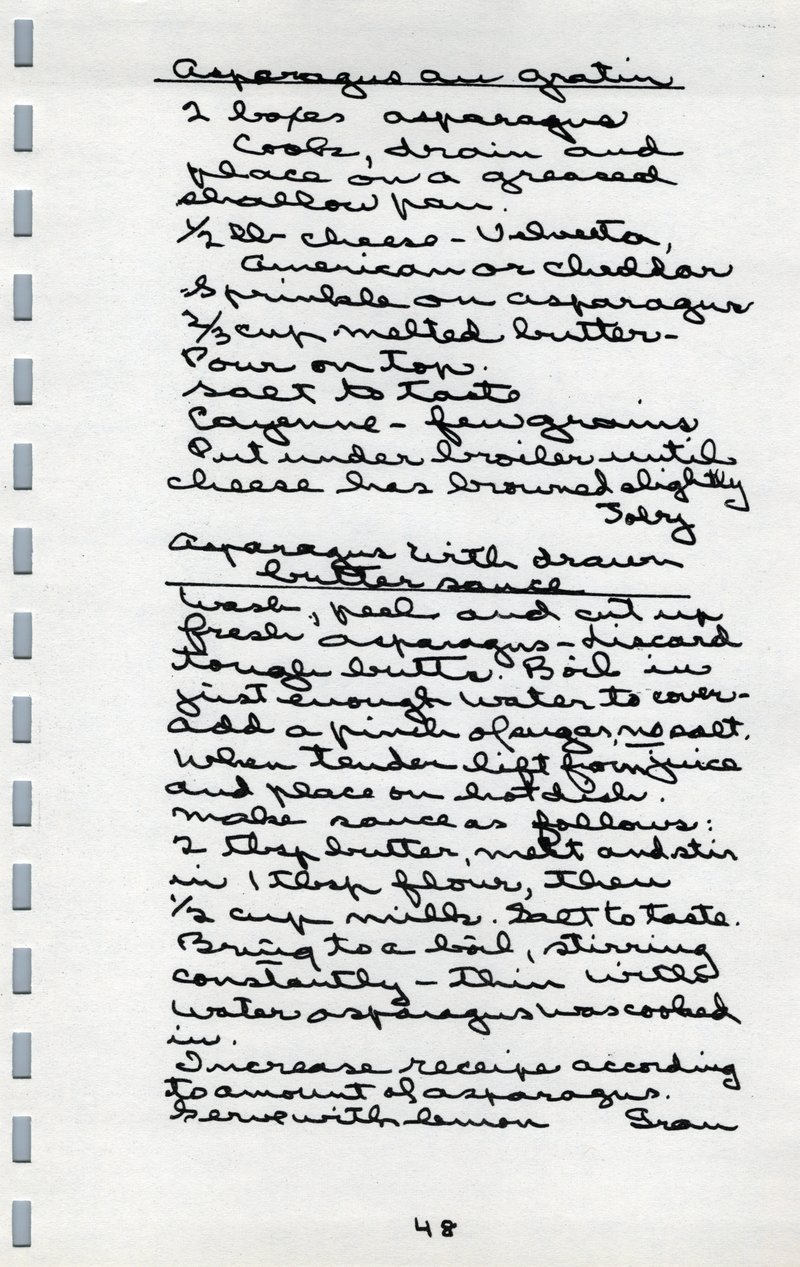 Asparagus au gratin
2 boxes asparagus
Cook, drain and
place on a greased
shallow pan.
1/2 lb cheese - Velveeta,
American or cheddar
Sprinkle on asparagus
2/3 cup melted butter -
Pour on top.
Salt to taste
Cayenne - few grains
Put under broiler until
cheese has browned slightly
Asparagus with drawn
butter sauce
Wash, peel and cut up
fresh asparagus - discard
tough butts. Boil in
just enough water to cover -
add a pinch of sugar, no salt.
When tender lift from juice
and place on hot dish.
Make sauce as follows:
2 tbsp butter, melt and stir
in 1 tbsp flour, then
1/2 cup milk. Salt to taste.
Bring to a boil, stirring
constantly - thin with
water asparagus was cooked
in.
Increase receipe according
to amount of asparagus.
Serve with lemon Fran
48